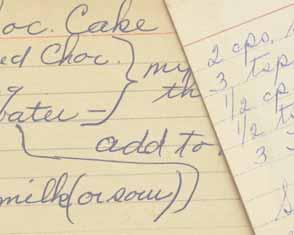 oc. Cake
ed Choc.
water –
add to
milk (or sour)
2 cps.
3 tsp
1/2 cp
1/2 t
3